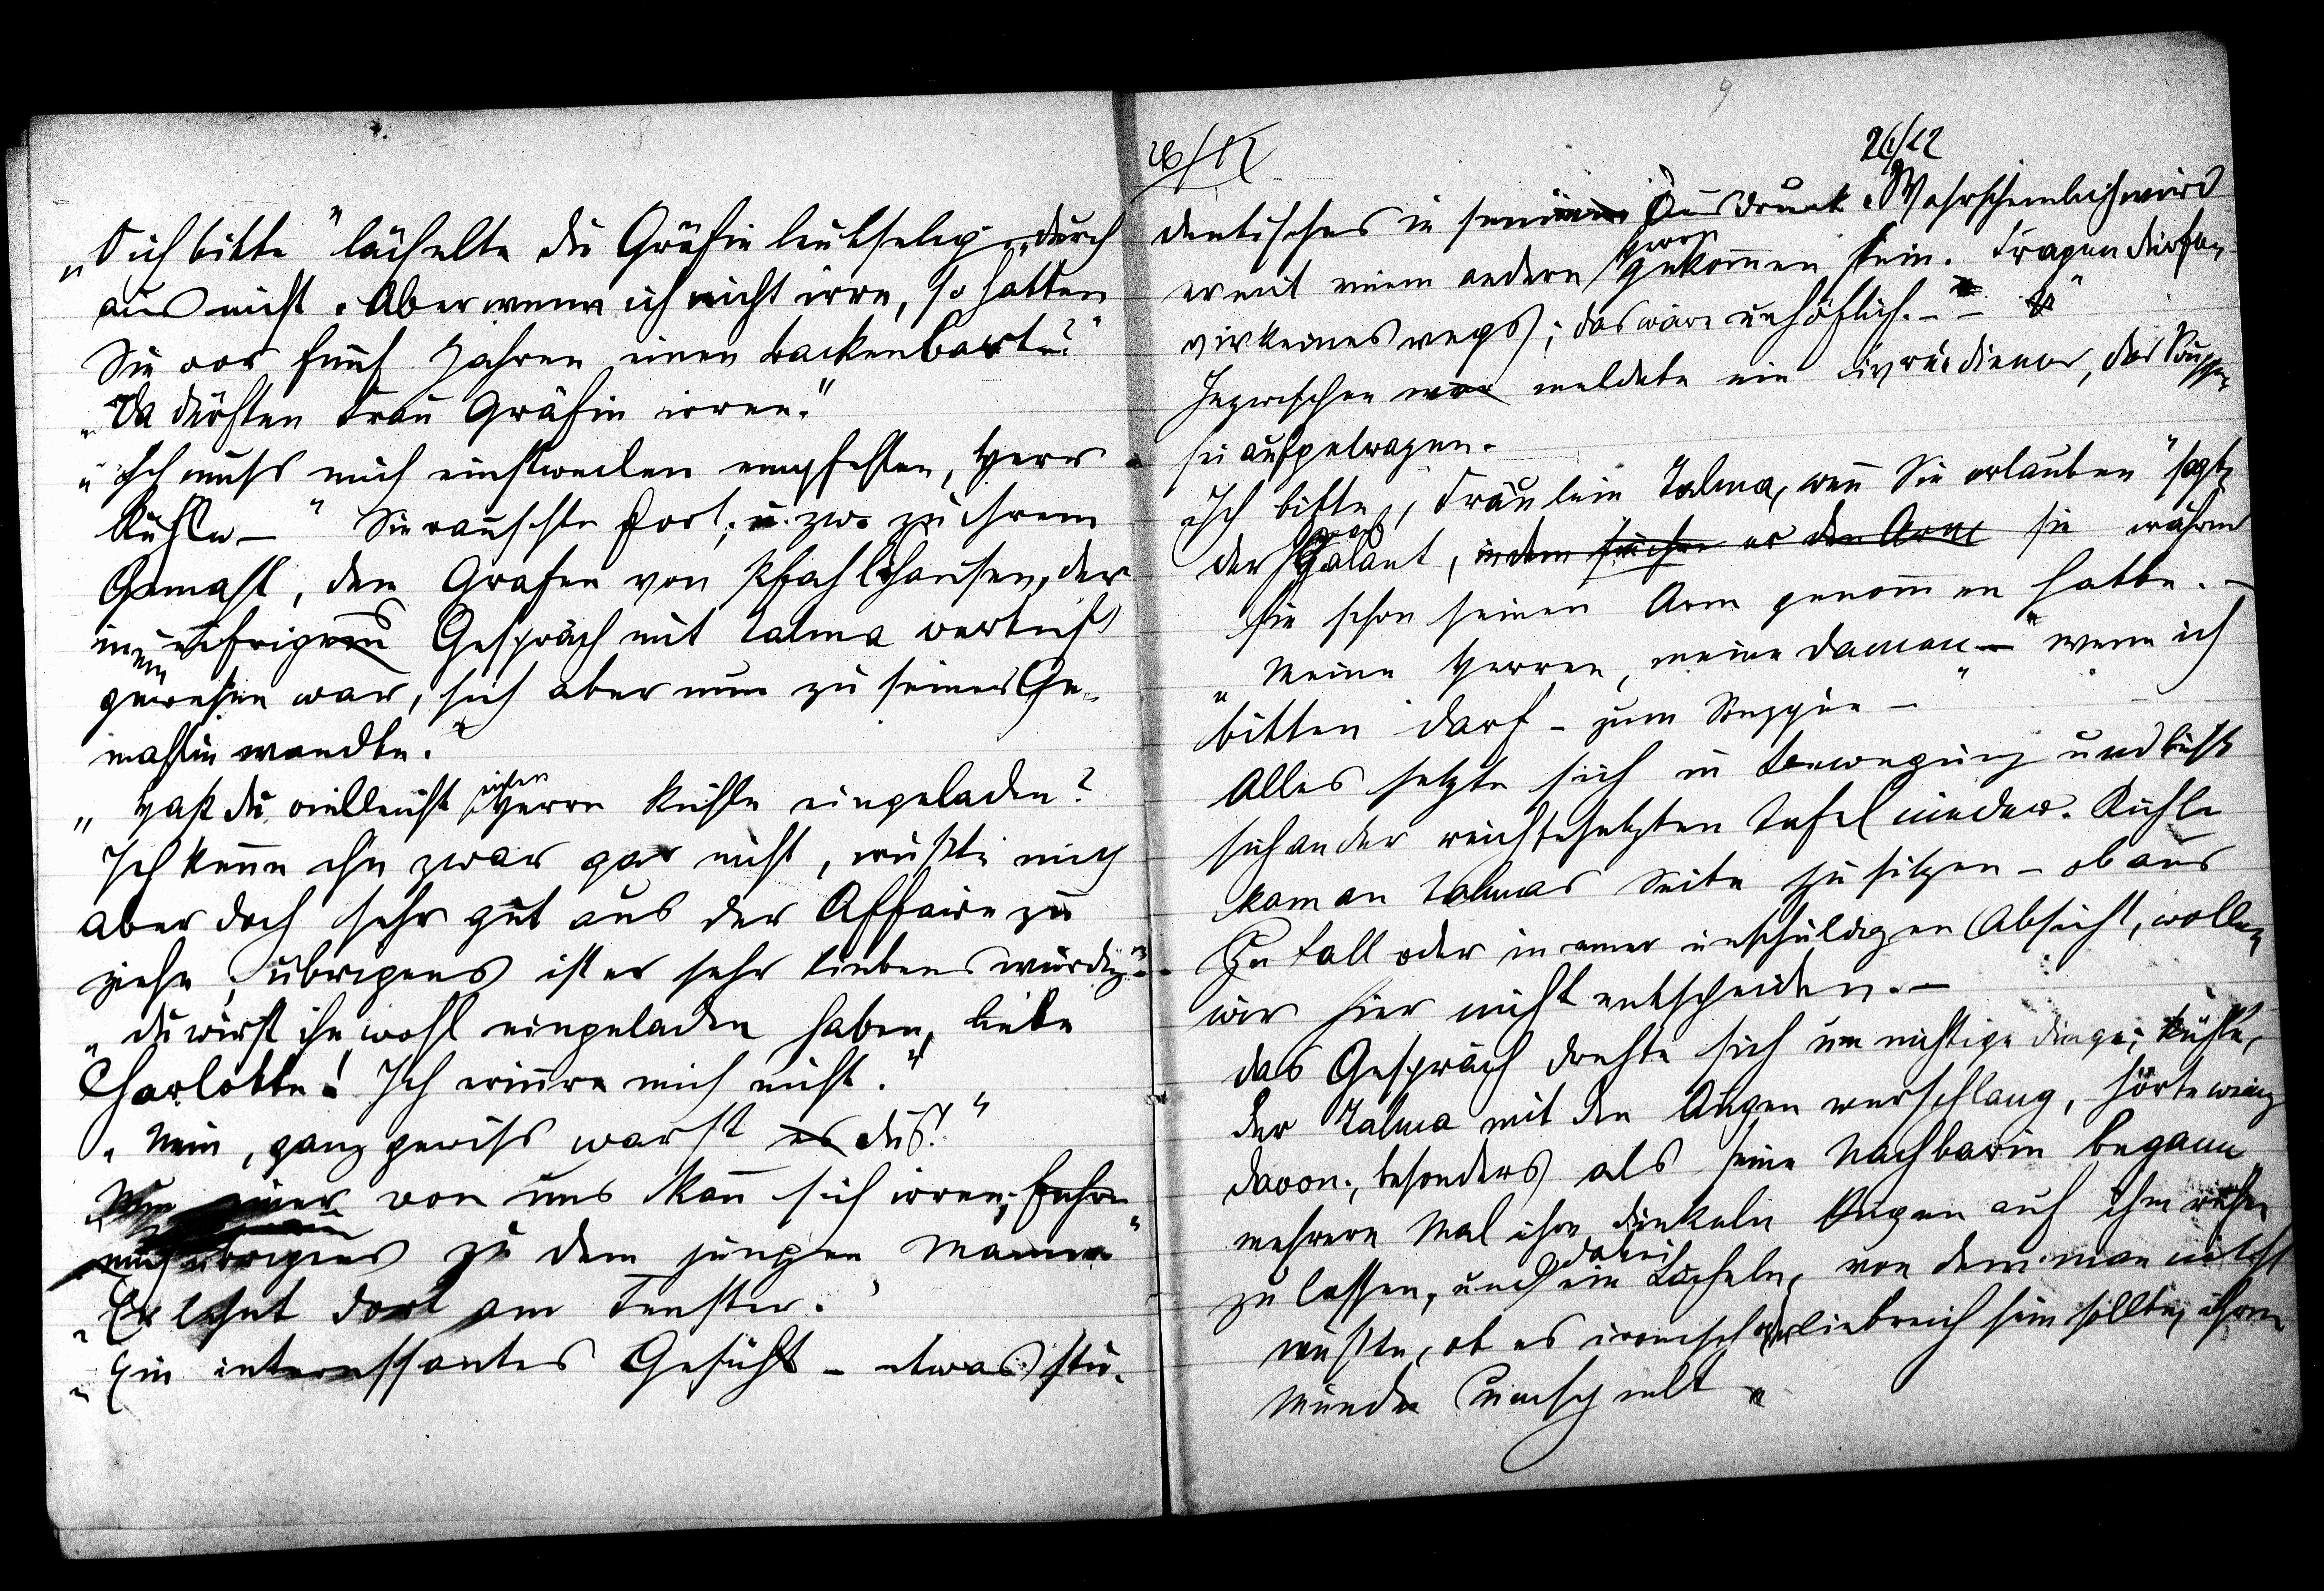 8
„O ich bitte" lächelte die Gräfin leutselig, „durch
aus nicht. Aber wenn ich nicht irre, so hatten
Sie vor fünf Jahren einen Backenbart?"
„Da dürften Frau Gräfin irren."
„Ich muss mich einstweilen empfehlen, Herr
Kühle – " Sie rauschte fort; u. zw. zu ihrem
Gemahl, dem Grafen von Pfahlhausen, der
in eifrigem Gespräch mit Talma vertieft
gewesen war, sich aber nun zu seiner Ge-
mahlin wandte.
„Hast du vielleicht Herrn Kühle eingeladen?
Ich kenne ihn zwar gar nicht, wußte mich
aber doch sehr gut aus der Affaire zu
ziehn; übrigens ist er sehr liebenswürdig."
„Du wirst ihn wohl eingeladen haben, liebe
Charlotte! Ich erinnre mich nicht."
„Nein, ganz gewiss warst es du!"
einer von uns kann sich irren; führe
mich übrigens zu dem jungen Manne"
„Er lehnt dort am Fenster."
„Ein interessantes Gesicht – etwas stu-
9
26/12
26/12
dentisches im Ausdruck. Wahrscheinlich wird
er mit einem andern Herrn gekommen sein. Fragen dürfen
wir keineswegs; das wäre unhöflich. – – "
Inzwischen meldete ein Livréediener, das Souper
sei aufgetragen.
„Ich bitte, Fräulein Talma, wenn Sie erlauben" sagte
der Graf galant, indem er den Arm sie während
sie schon seinen Arm genommen hatte. –
„Meine Herren, meine Damen – " wenn ich
bitten darf – zum Souper – "
Alles setzte sich in Bewegung und ließ
sich an der reichbesetzten Tafel nieder. Kühle
kam an Talmas Seite zu sitzen – ob aus
Zufall oder in einer unschuldigen Absicht, wollen
wir hier nicht entscheiden. –
Das Gespräch drehte sich um nichtige Dinge; Kühle,
der Talma mit den Augen verschlang, hörte wenig
davon; besonders als seine Nachbarin begann
mehrere Mal ihre dunkeln Augen auf ihm ruhn
zu lassen, und dabei ein Lächeln, von dem man nicht
wußte, ob es ironisch oder liebreich sein sollte, ihren
Mund umspielt